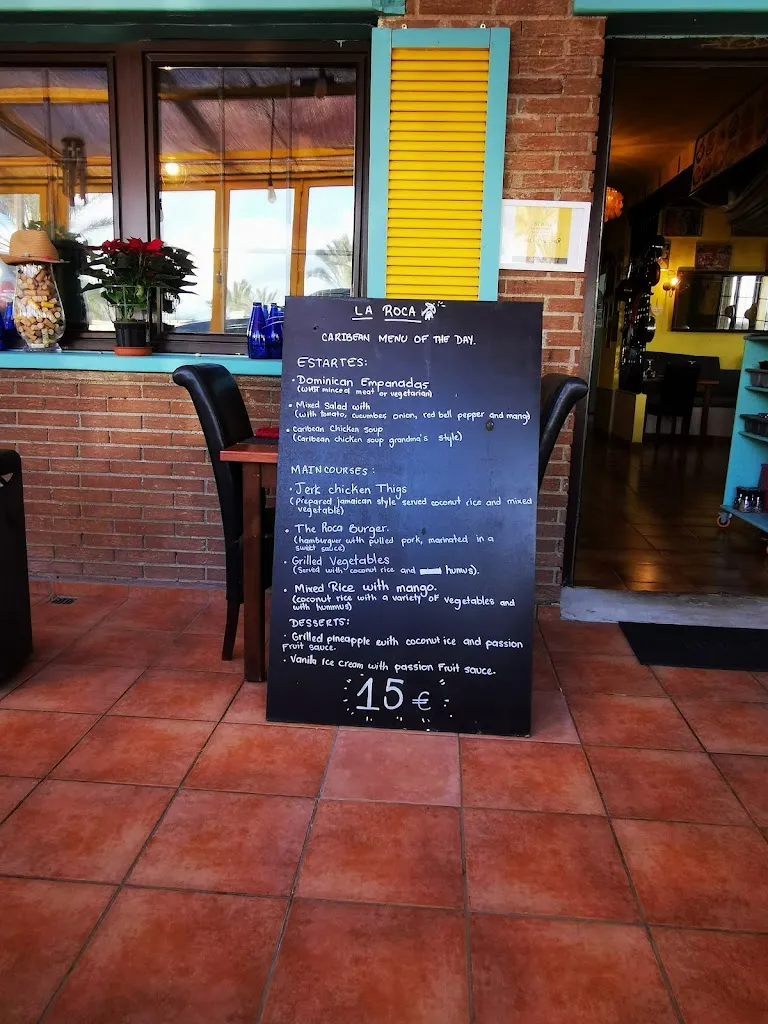 LA ROCA
CARIBEAN MENU OF THE DAY.
ESTARTES:
· Dominican Empanadas
(whit minced meat or vegetarian)
· Mixed Salad with
(with tomato, cucumber, onion, red bell pepper and mang)
· Caribean Chicken Soup
(Caribean chicken soup grandma's style)
MAIN COURSES:
· Jerk chicken Thigs
(prepared jamaican style served coconut rice and mixed
vegetable)
· The Roca Burger.
(hamburguer with pulled pork, marinated in a
sweet sauce)
· Grilled Vegetables
(Served with coconut rice and humus).
· Mixed Rice with mango.
(coconut rice with a variety of vegetables and
with hummus)
DESSERTS:
· Grilled pineapple with coconut ice and passion
Fruit sauce.
· Vanila Ice cream with passion Fruit sauce.
15 €